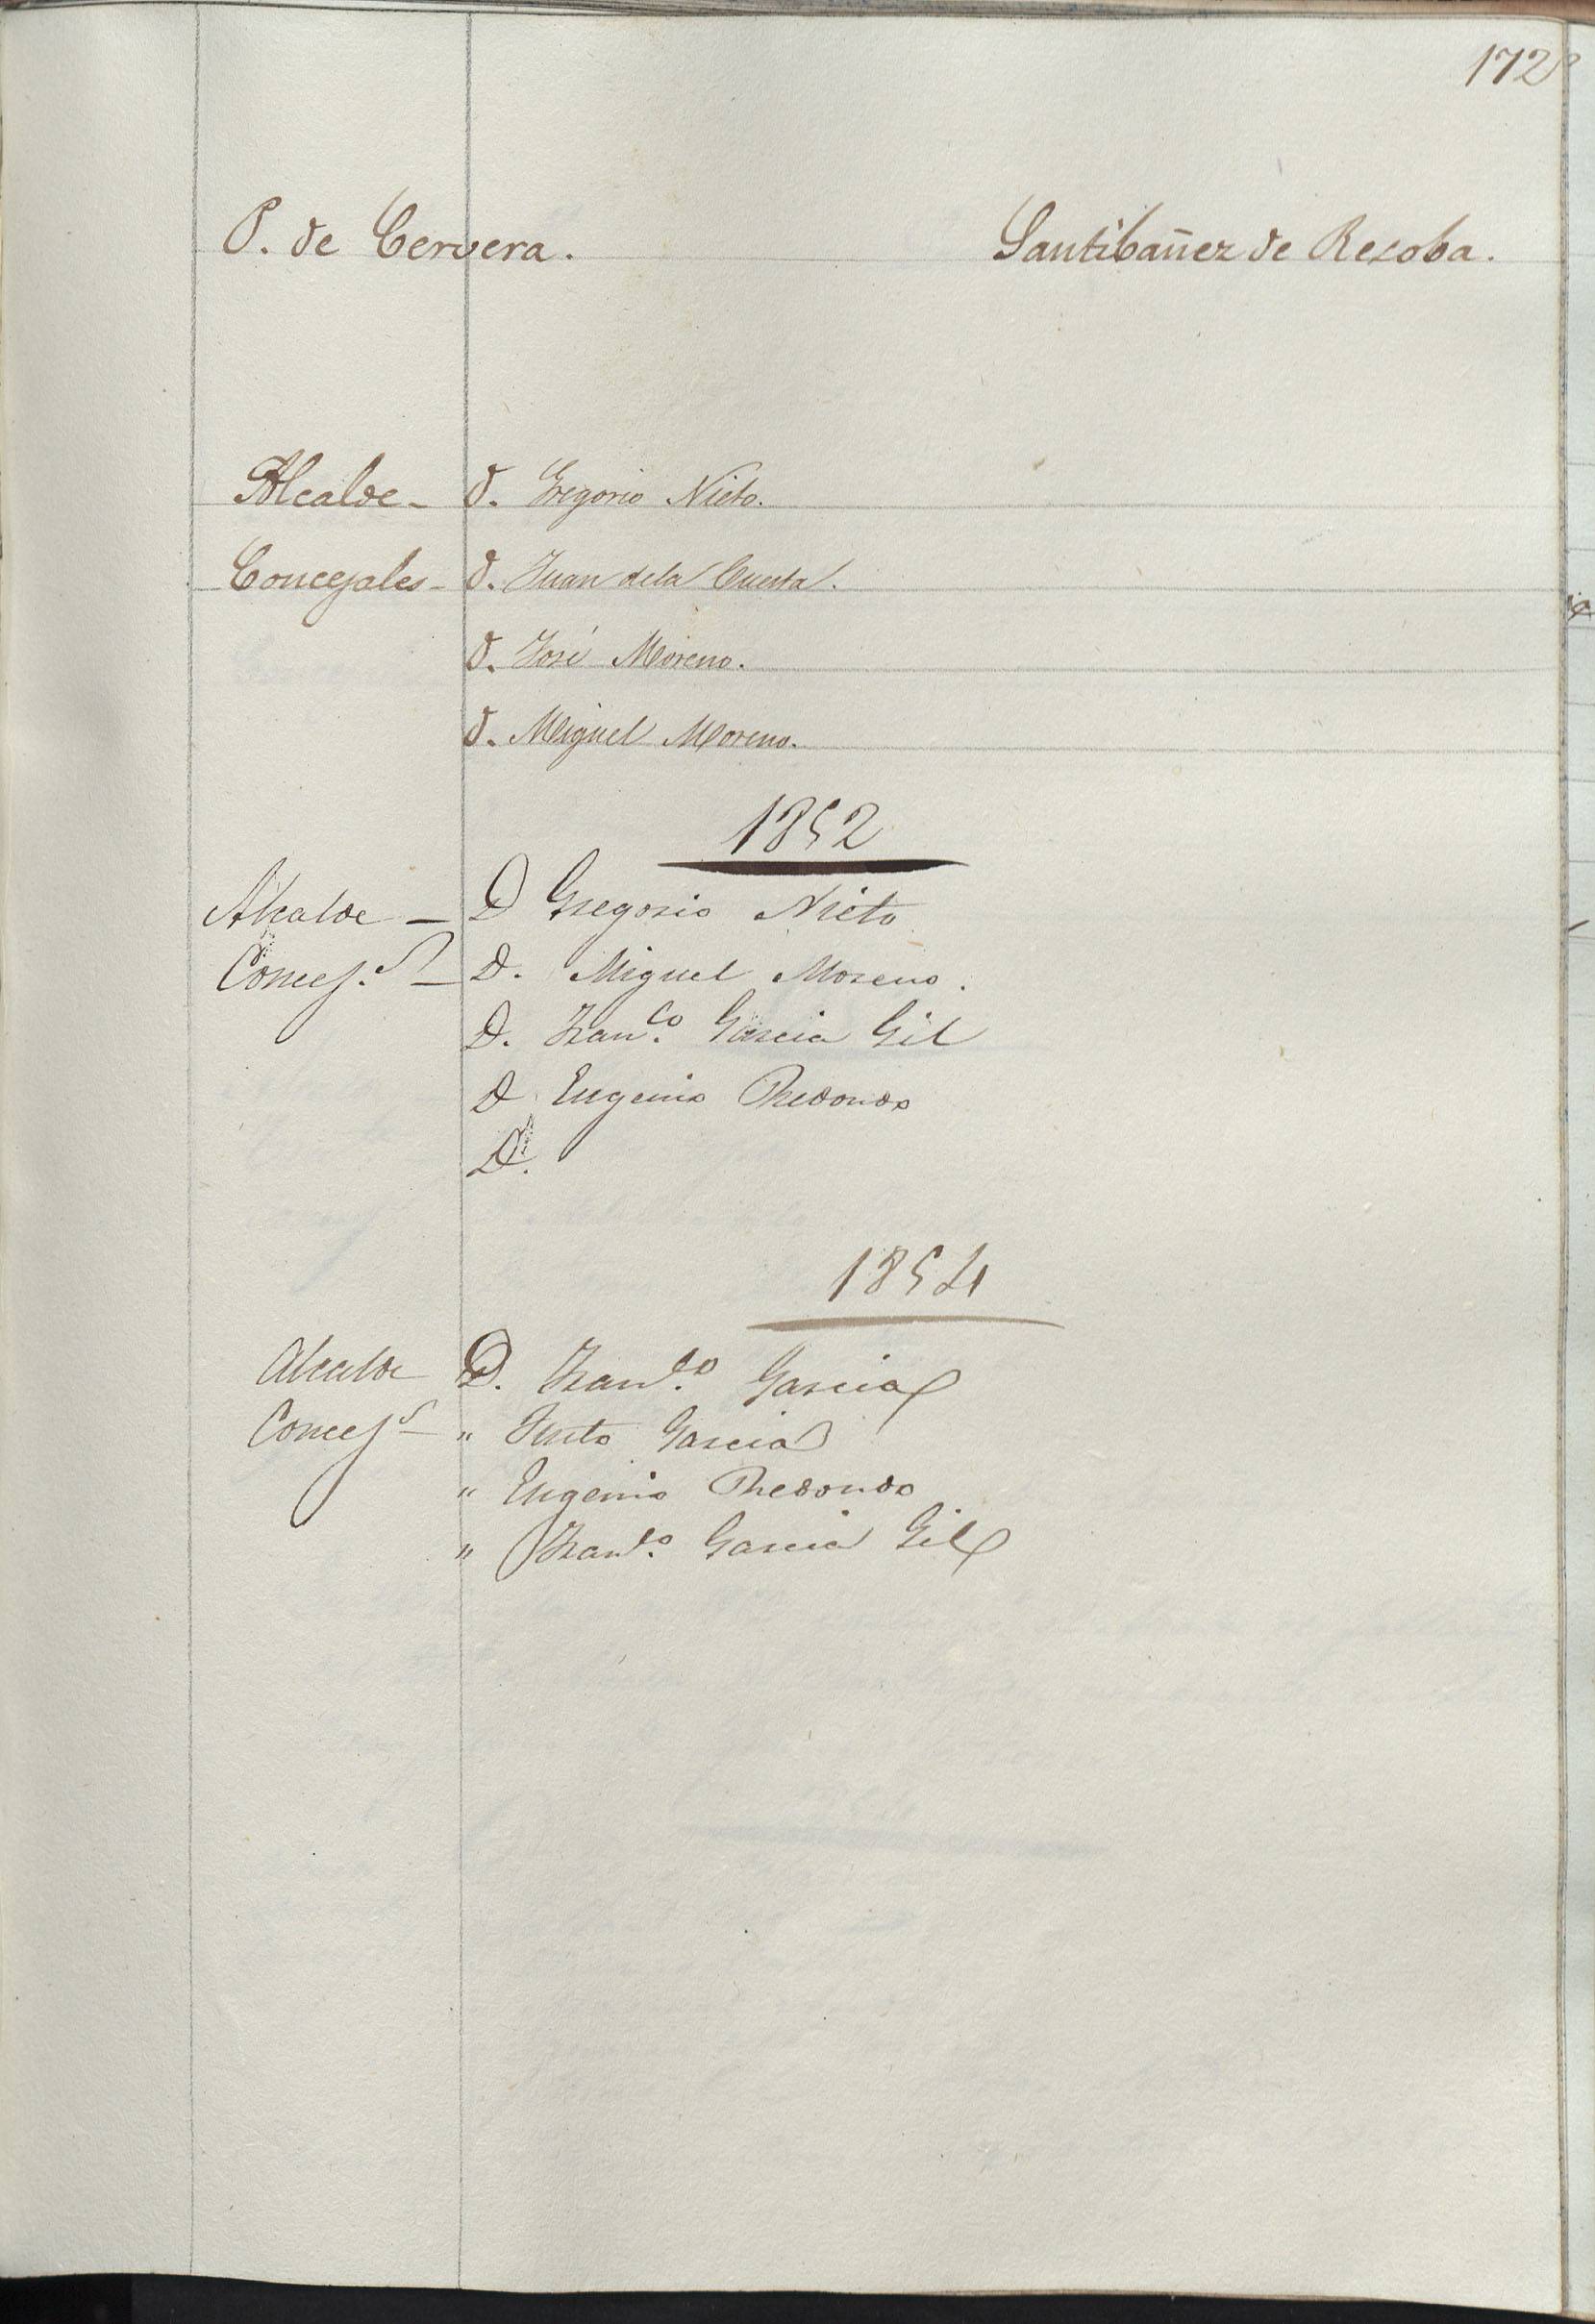 172
P. de Cervera. Santibañez de Resoba.
Alcalde - D. Gregorio Nieto.
Concejales - D. Juan de la Cuesta.
D. José Moreno.
D. Miguel Moreno.
1852
Alcalde - D Gregorio Nieto
Concej.s - D. Miguel Moreno.
D. Fran.co Garcia Gil
D Eugenio Redondo
D.
1854
Alcalde D. Fran.co Garcia
Concej.s - " Justo Garcia
" Eugenio Redondo
" Fran.co Garcia Gil